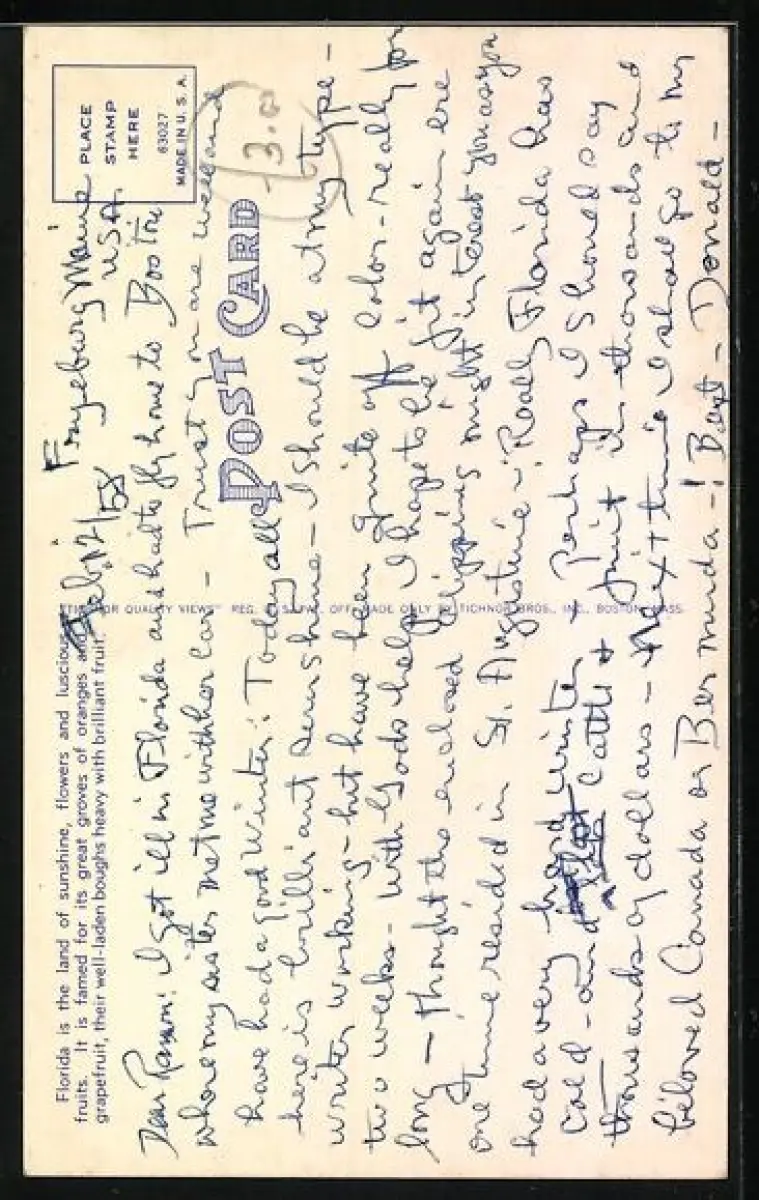 Florida is the land of sunshine, flowers and luscious
fruits. It is famed for its great groves of oranges and
grapefruit, their well-laden boughs heavy with brilliant fruit.
PLACE
STAMP
HERE
63027
MADE IN U. S. A.
POST CARD
13.00
"TICHNOR QUALITY VIEWS" REG. U. S. PAT. OFF. MADE ONLY BY TICHNOR BROS., INC., BOSTON, MASS.
Fryeburg Maine
USA.
12/58
Dear I got ill in Florida and had to fly home to Boston
where my sister met me with her car - Trust you are well and
have had a good Winter: Today all
here is brilliant sunshine - I should be at my type-
writer working - but have been quite off color - really for
two weeks - With Gods help I hope to be fit again ere
long - thought the enclosed clipping might interest you as you
one time resided in St. Augustine - Really Florida has
had a very hard winter & Perhaps I should say
cold - and Cattle & fruit in thousands and
thousands of dollars - Next time I shall go to my
beloved Canada or Bermuda -! Best - Donald -